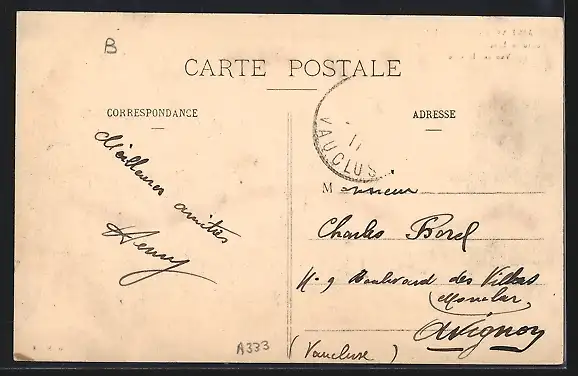 B
CARTE POSTALE
CORRESPONDANCE
ADRESSE
Meilleures amitiés
Henry
VAUCLUS
11
Monsieur
Charles Borel
N° 9 Boulevard des Villas
Monclar
Avignon
(Vaucluse)
A333